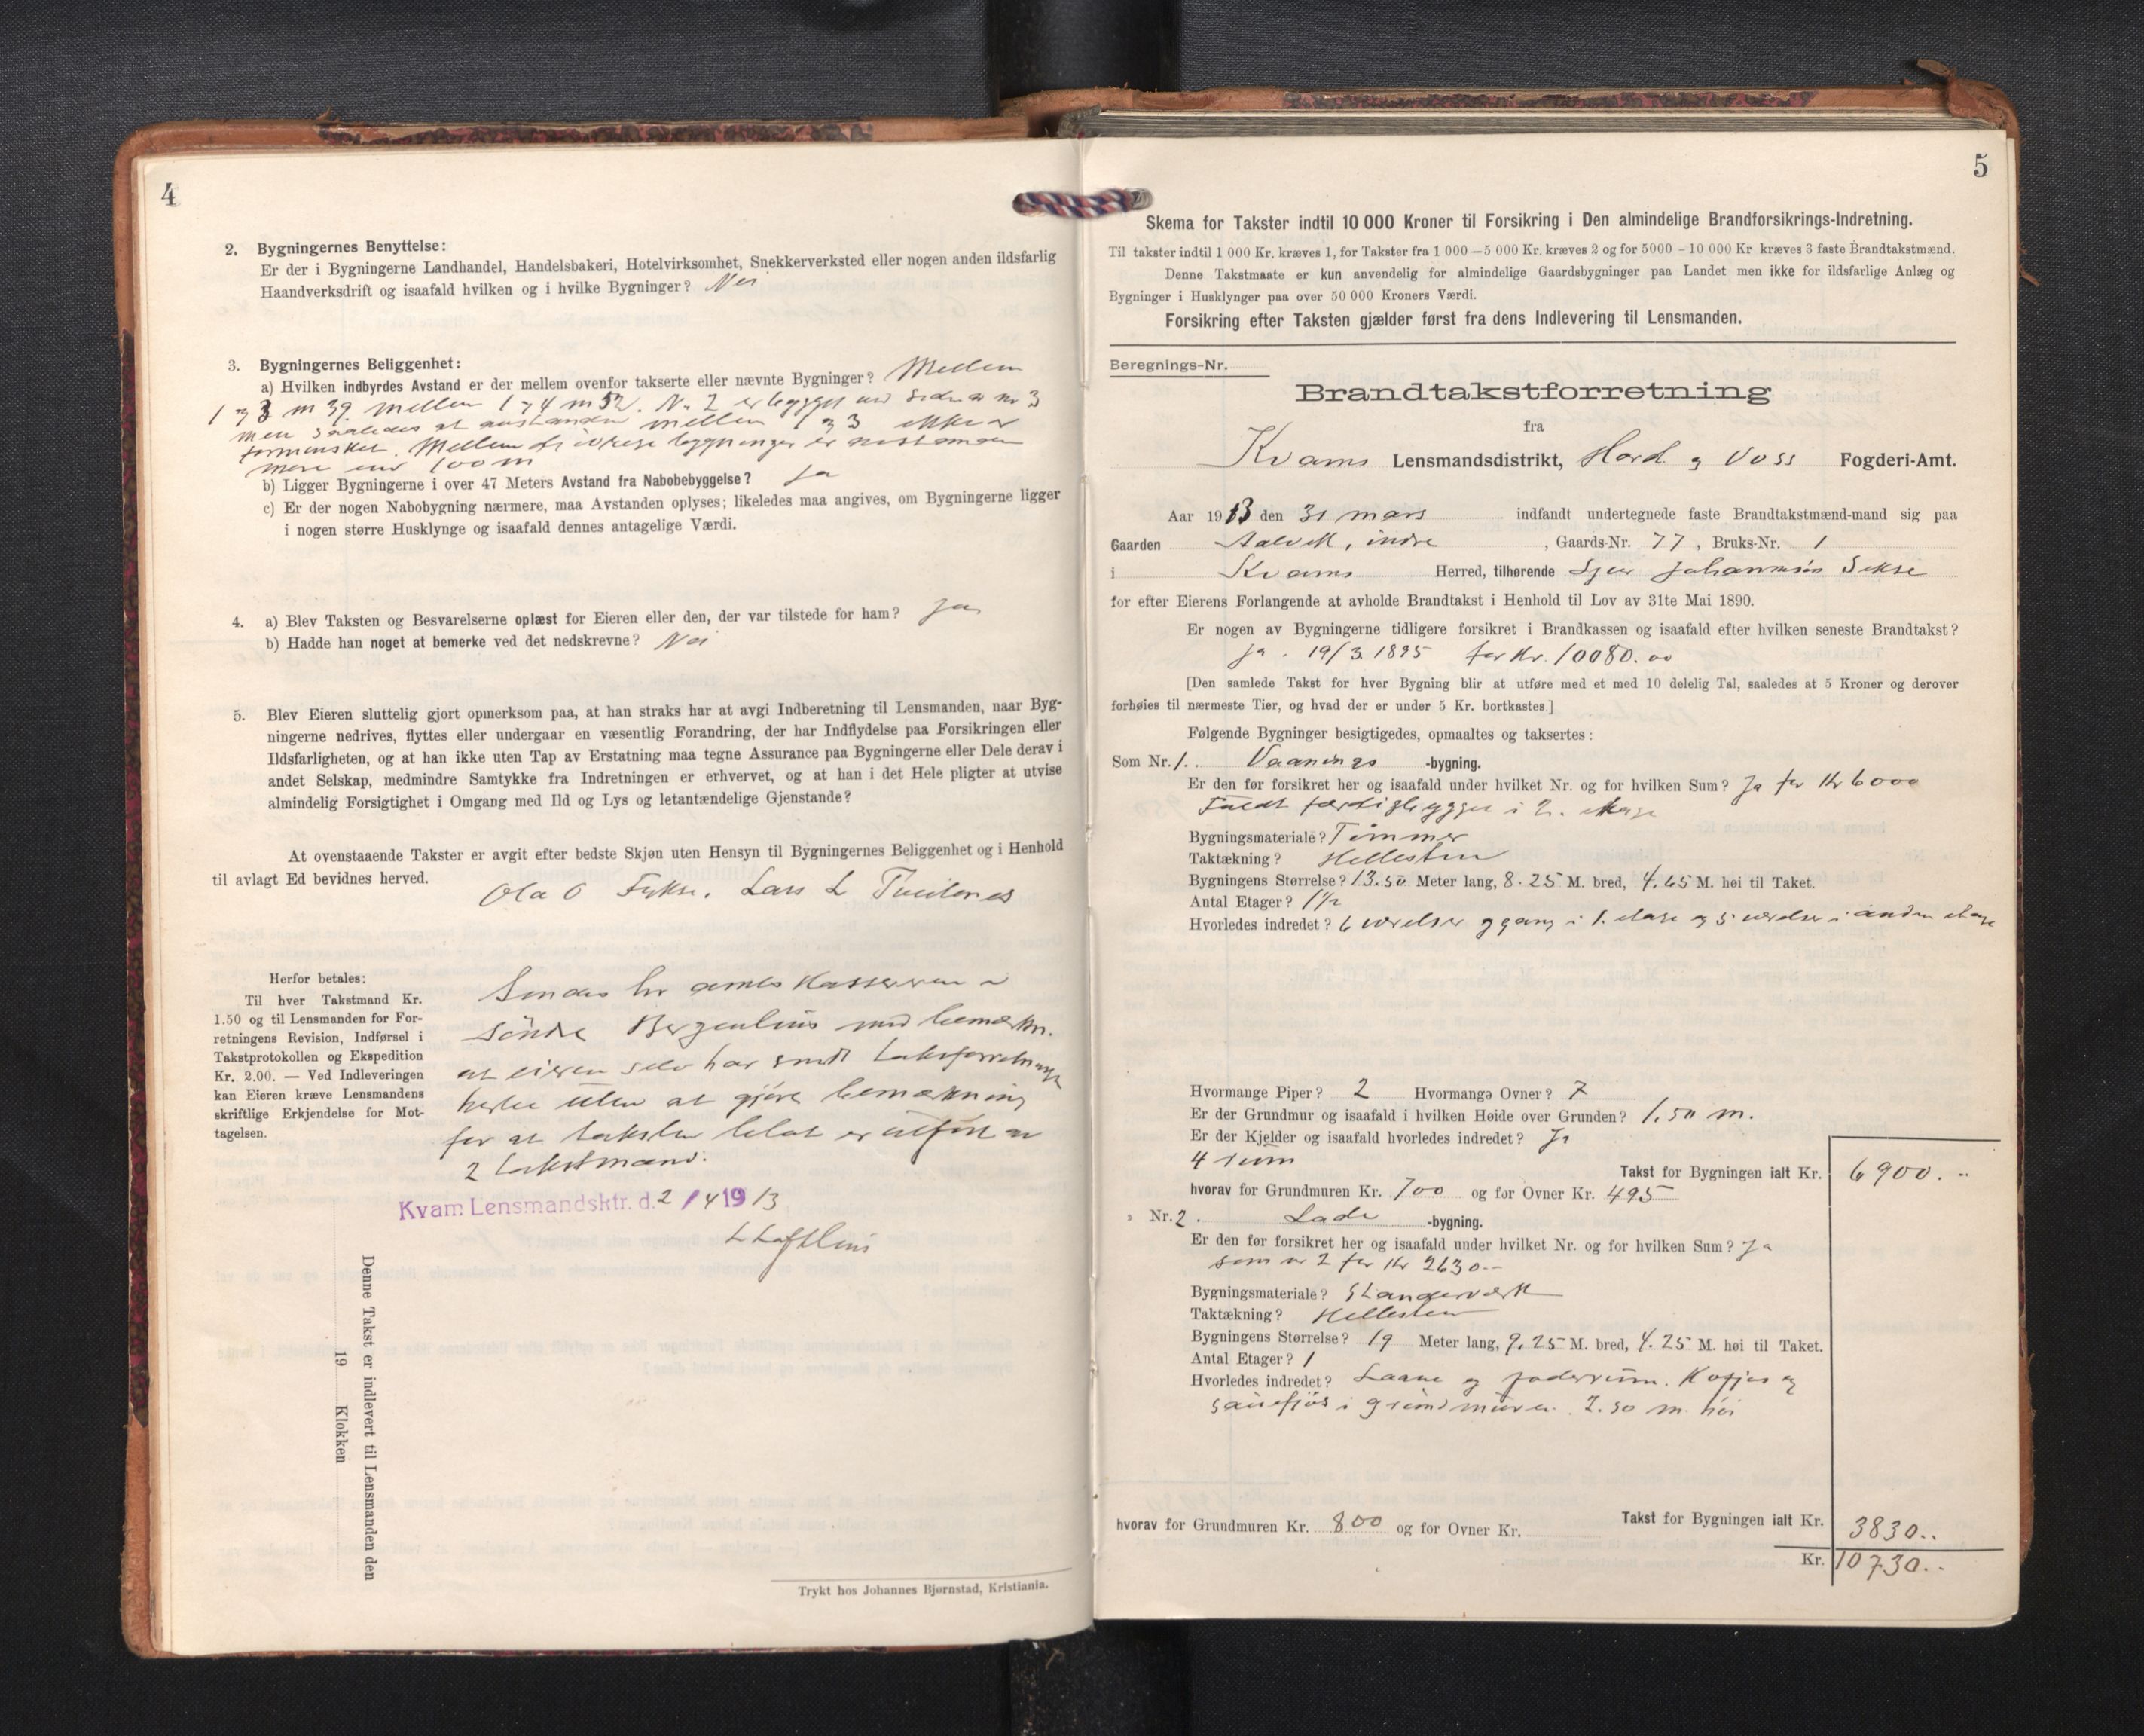 4
2. Bygningernes Benyttelse:
Er der i Bygningerne Landhandel, Handelsbakeri, Hotelvirksomhet, Snekkerverksted eller nogen anden ildsfarlig
Haandverksdrift og isaafald hvilken og i hvilke Bygninger? Nei
3. Bygningernes Beliggenhet:
a) Hvilken indbyrdes Avstand er der mellem ovenfor takserte eller nævnte Bygninger? Mellem
1 og 3 m 39. mellem 1 og 4 m 52. No 2 er bygget ved siden av nr 3
men saaledes at avstanden mellem 1 og 3 ikke er
forminsket. Mellem de øvrige bygninger er avstanden
mere end 100 m
b) Ligger Bygningerne i over 47 Meters Avstand fra Nabobebyggelse? Ja
c) Er der nogen Nabobygning nærmere, maa Avstanden oplyses; likeledes maa angives, om Bygningerne ligger
i nogen større Husklynge og isaafald dennes antagelige Værdi.
4. a) Blev Taksten og Besvarelserne oplæst for Eieren eller den, der var tilstede for ham? Ja
b) Hadde han noget at bemerke ved det nedskrevne? Nei
5. Blev Eieren sluttelig gjort opmerksom paa, at han straks har at avgi Indberetning til Lensmanden, naar Byg-
ningerne nedrives, flyttes eller undergaar en væsentlig Forandring, der har Indflydelse paa Forsikringen eller
Ildsfarligheten, og at han ikke uten Tap av Erstatning maa tegne Assurance paa Bygningerne eller Dele derav i
andet Selskap, medmindre Samtykke fra Indretningen er erhvervet, og at han i det Hele pligter at utvise
almindelig Forsigtighet i Omgang med Ild og Lys og letantændelige Gjenstande?
At ovenstaaende Takster er avgit efter bedste Skjøn uten Hensyn til Bygningernes Beliggenhet og i Henhold
til avlagt Ed bevidnes herved.
Ola O Fykse. Lars L
Herfor betales:
Til hver Takstmand Kr.
1.50 og til Lensmanden for For-
retningens Revision, Indførsel i
Takstprotokollen og Ekspedition
Kr. 2.00. — Ved Indleveringen
kan Eieren kræve Lensmandens
skriftlige Erkjendelse for Mot-
tagelsen.
Sendes hr amtskassereren i
Søndre Bergenhus med bemerkn.
at eieren selv har sendt takstforretningen
hertil uten at gjøre bemerkning
for at taksten blot er utført av
2 takstmænd.
Kvam Lensmandsktr. d. 2/4 1913
Denne Takst er indlevert til Lensmanden den
19 Klokken
Trykt hos Johannes Bjørnstad, Kristiania.
5
Skema for Takster indtil 10 000 Kroner til Forsikring i Den almindelige Brandforsikrings-Indretning.
Til takster indtil 1 000 Kr. kræves 1, for Takster fra 1 000 —5 000 Kr. kræves 2 og for 5000 – 10 000 Kr kræves 3 faste Brandtakstmænd.
Denne Takstmaate er kun anvendelig for almindelige Gaardsbygninger paa Landet men ikke for ildsfarlige Anlæg og
Bygninger i Husklynger paa over 50 000 Kroners Værdi.
Forsikring efter Taksten gjælder først fra dens Indlevering til Lensmanden.
Beregnings-Nr.
Brandtakstforretning
fra
Kvams Lensmandsdistrikt, Hard. og Voss Fogderi-Amt.
Aar 1913 den 31 mars indfandt undertegnede faste Brandtakstmænd-mand sig paa
Gaarden Aalvik, indre , Gaards-Nr. 77, Bruks-Nr. 1
i Kvams Herred, tilhørende Sjur Johannessøn Sekse
for efter Eierens Forlangende at avholde Brandtakst i Henhold til Lov av 31te Mai 1890.
Er nogen av Bygningerne tidligere forsikret i Brandkassen og isaafald efter hvilken seneste Brandtakst?
Ja. 19/3 1895 for Kr. 10080.00
[Den samlede Takst for hver Bygning blir at utføre med et med 10 delelig Tal, saaledes at 5 Kroner og derover
forhøies til nærmeste Tier, og hvad der er under 5 Kr. bortkastes.]
Følgende Bygninger besigtigedes, opmaaltes og taksertes:
Som Nr. 1. Vaanings -bygning.
Er den før forsikret her og isaafald under hvilket Nr. og for hvilken Sum? Ja for Kr 6000
færdigbygget i 2. etage
Bygningsmateriale? Tømmer
Taktækning? Hellesten
Bygningens Størrelse? 13.50 Meter lang, 8.25 M. bred, 4.65 M. høi til Taket.
Antal Etager? 1½
Hvorledes indredet? 6 værelser og gang i 1. etage og 5 værelser i anden etage
Hvormange Piper? 2 Hvormange Ovner? 7
Er der Grundmur og isaafald i hvilken Høide over Grunden? 1,50 m.
Er der Kjelder og isaafald hvorledes indredet? Ja
4 rum
Takst for Bygningen ialt Kr. 6900.-
hvorav for Grundmuren Kr. 700 og for Ovner Kr. 495
Nr. 2. Lade -bygning.
Er den før forsikret her og isaafald under hvilket Nr. og for hvilken Sum? Ja
som nr 2 for Kr 2630.-
Bygningsmateriale? Standerværk
Taktækning? Hellesten
Bygningens Størrelse? 19 Meter lang, 9.25 M. bred, 4.25 M. høi til Taket.
Antal Etager? 1
Hvorledes indredet? Laave og foderrum. Kofjøs og
sauefjøs i grundmuren. 2.50 m. høi
Takst for Bygningen ialt Kr. 3830..
hvorav for Grundmuren Kr. 800 og for Ovner Kr.
Kr. 10730..